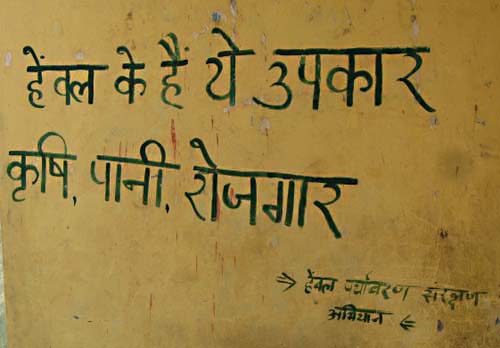 हेंवल के हैं ये उपकार
कृषि, पानी, रोजगार
⇒ हेंवल पर्यावरण संरक्षण
अभियान ⇐